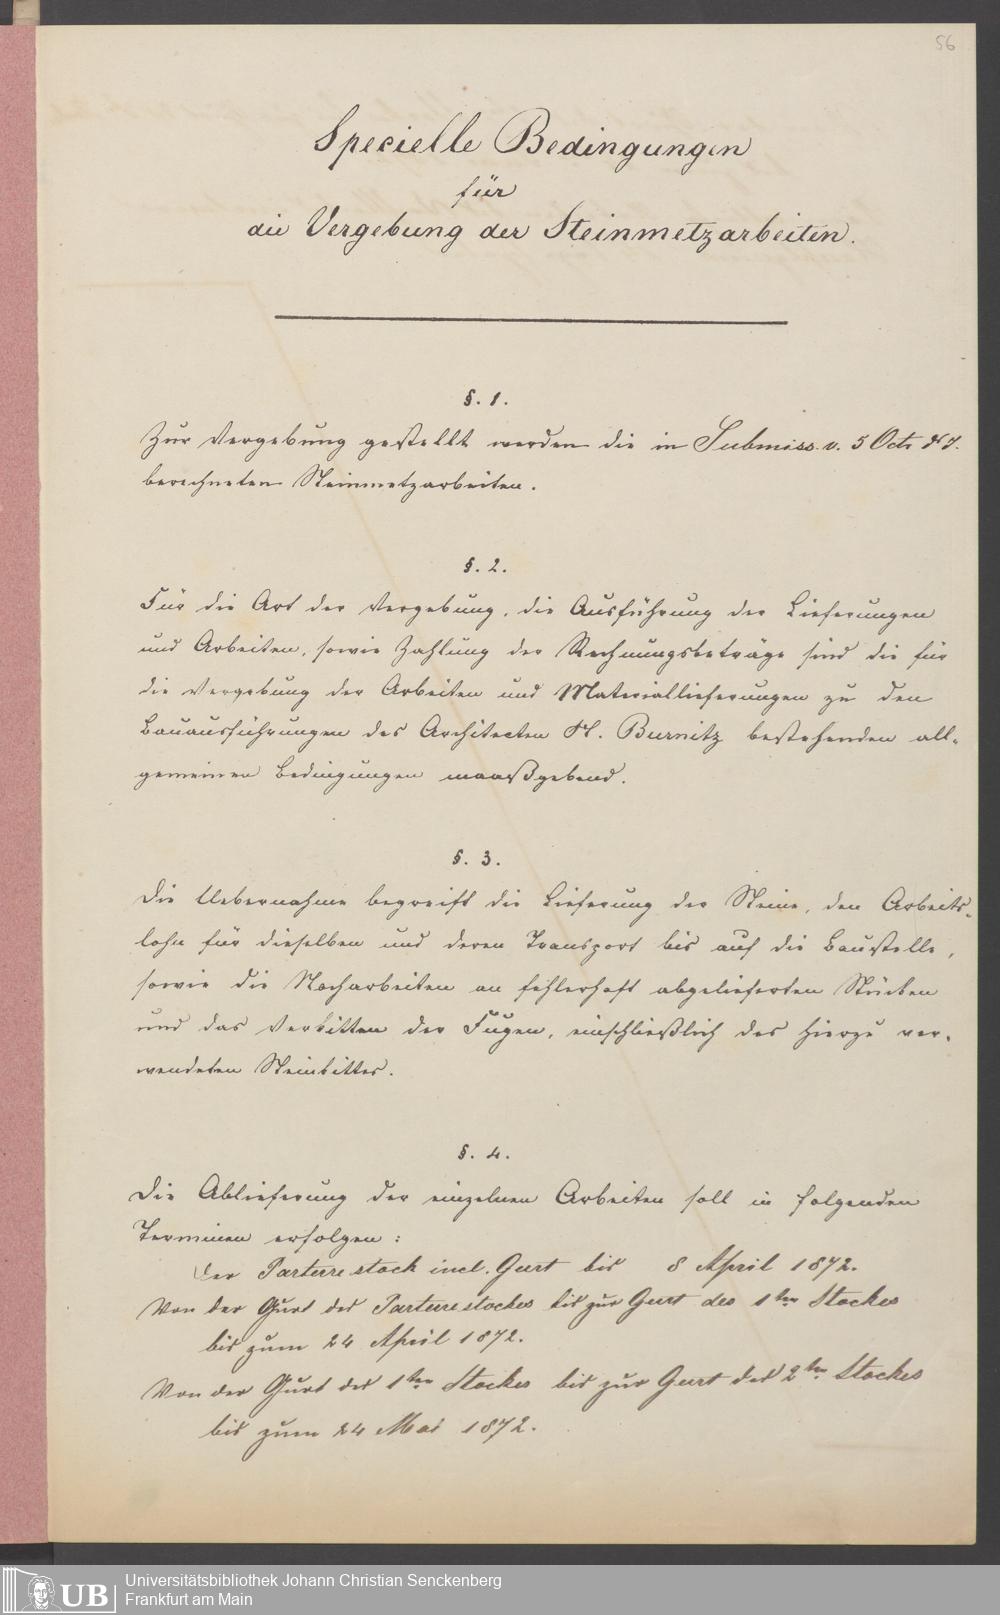 56
Specielle Bedingungen
für
die Vergebung der Steinmetzarbeiten.
§. 1.
Zur Vergebung gestellt werden die in Submiss. v. 5 Octr d J.
berechneten Steinmetzarbeiten.
§. 2.
Für die Art der Vergebung, die Ausführung der Lieferungen
und Arbeiten, sowie Zahlung der Rechnungsbeträge sind die für
die Vergebung der Arbeiten und Materiallieferungen zu den
Bauausführungen des Architecten H. Burnitz bestehenden all-
gemeinen Bedingungen maaßgebend.
§. 3.
Die Uebernahme begreift die Lieferung der Steine, den Arbeits-
lohn für dieselben und deren Transport bis auf die Baustelle,
sowie die Nacharbeiten an fehlerhaft abgelieferten Stücken
und das Verkitten der Fugen, einschließlich des hierzu ver-
wendeten Steinkittes.
§. 4.
Die Ablieferung der einzelnen Arbeiten soll in folgenden
Terminen erfolgen:
Der Parterrestock incl. Gurt bis 8 April 1872.
Von der Gurt des Parterrestockes bis zur Gurt des 1ten Stockes
bis zum 24 April 1872.
Von der Gurt des 1ten Stockes bis zur Gurt des 2ten Stockes
bis zum 24 Mai 1872.
UB
Universitätsbibliothek Johann Christian Senckenberg
Frankfurt am Main